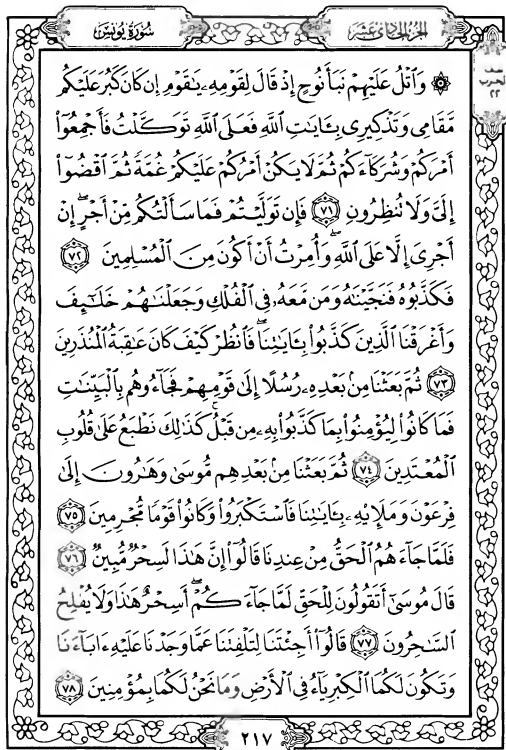 الجزء الحادي عشر
سورة يونس
نصف
الحزب
٢٢
۞ وَٱتْلُ عَلَيْهِمْ نَبَأَ نُوحٍ إِذْ قَالَ لِقَوْمِهِۦ يَٰقَوْمِ إِن كَانَ كَبُرَ عَلَيْكُم
مَّقَامِى وَتَذْكِيرِى بِـَٔايَٰتِ ٱللَّهِ فَعَلَى ٱللَّهِ تَوَكَّلْتُ فَأَجْمِعُوٓا۟
أَمْرَكُمْ وَشُرَكَآءَكُمْ ثُمَّ لَا يَكُنْ أَمْرُكُمْ عَلَيْكُمْ غُمَّةً ثُمَّ ٱقْضُوٓا۟
إِلَىَّ وَلَا تُنظِرُونِ ٧١ فَإِن تَوَلَّيْتُمْ فَمَا سَأَلْتُكُم مِّنْ أَجْرٍ ۖ إِنْ
أَجْرِىَ إِلَّا عَلَى ٱللَّهِ ۖ وَأُمِرْتُ أَنْ أَكُونَ مِنَ ٱلْمُسْلِمِينَ ٧٢
فَكَذَّبُوهُ فَنَجَّيْنَٰهُ وَمَن مَّعَهُۥ فِى ٱلْفُلْكِ وَجَعَلْنَٰهُمْ خَلَٰٓئِفَ
وَأَغْرَقْنَا ٱلَّذِينَ كَذَّبُوا۟ بِـَٔايَٰتِنَا ۖ فَٱنظُرْ كَيْفَ كَانَ عَٰقِبَةُ ٱلْمُنذَرِينَ
٧٣ ثُمَّ بَعَثْنَا مِنۢ بَعْدِهِۦ رُسُلًا إِلَىٰ قَوْمِهِمْ فَجَآءُوهُم بِٱلْبَيِّنَٰتِ
فَمَا كَانُوا۟ لِيُؤْمِنُوا۟ بِمَا كَذَّبُوا۟ بِهِۦ مِن قَبْلُ ۚ كَذَٰلِكَ نَطْبَعُ عَلَىٰ قُلُوبِ
ٱلْمُعْتَدِينَ ٧٤ ثُمَّ بَعَثْنَا مِنۢ بَعْدِهِم مُّوسَىٰ وَهَٰرُونَ إِلَىٰ
فِرْعَوْنَ وَمَلَإِي۟هِۦ بِـَٔايَٰتِنَا فَٱسْتَكْبَرُوا۟ وَكَانُوا۟ قَوْمًا مُّجْرِمِينَ ٧٥
فَلَمَّا جَآءَهُمُ ٱلْحَقُّ مِنْ عِندِنَا قَالُوٓا۟ إِنَّ هَٰذَا لَسِحْرٌ مُّبِينٌ ٧٦
قَالَ مُوسَىٰٓ أَتَقُولُونَ لِلْحَقِّ لَمَّا جَآءَكُمْ ۖ أَسِحْرٌ هَٰذَا وَلَا يُفْلِحُ
ٱلسَّٰحِرُونَ ٧٧ قَالُوٓا۟ أَجِئْتَنَا لِتَلْفِتَنَا عَمَّا وَجَدْنَا عَلَيْهِ ءَابَآءَنَا
وَتَكُونَ لَكُمَا ٱلْكِبْرِيَآءُ فِى ٱلْأَرْضِ وَمَا نَحْنُ لَكُمَا بِمُؤْمِنِينَ ٧٨
٢١٧